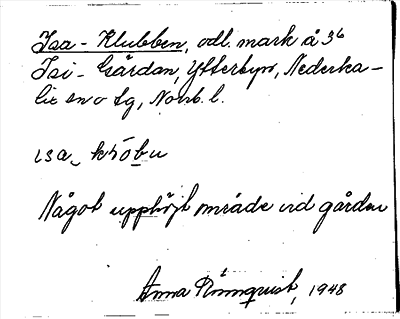 Isa-Klubben, odl. mark å 36
Isi-Gården, Ytterbyn, Nederka-
lix sn o tg, Norrb. l.
Något upphöjt område vid gården
Anna Rönnquist, 1948